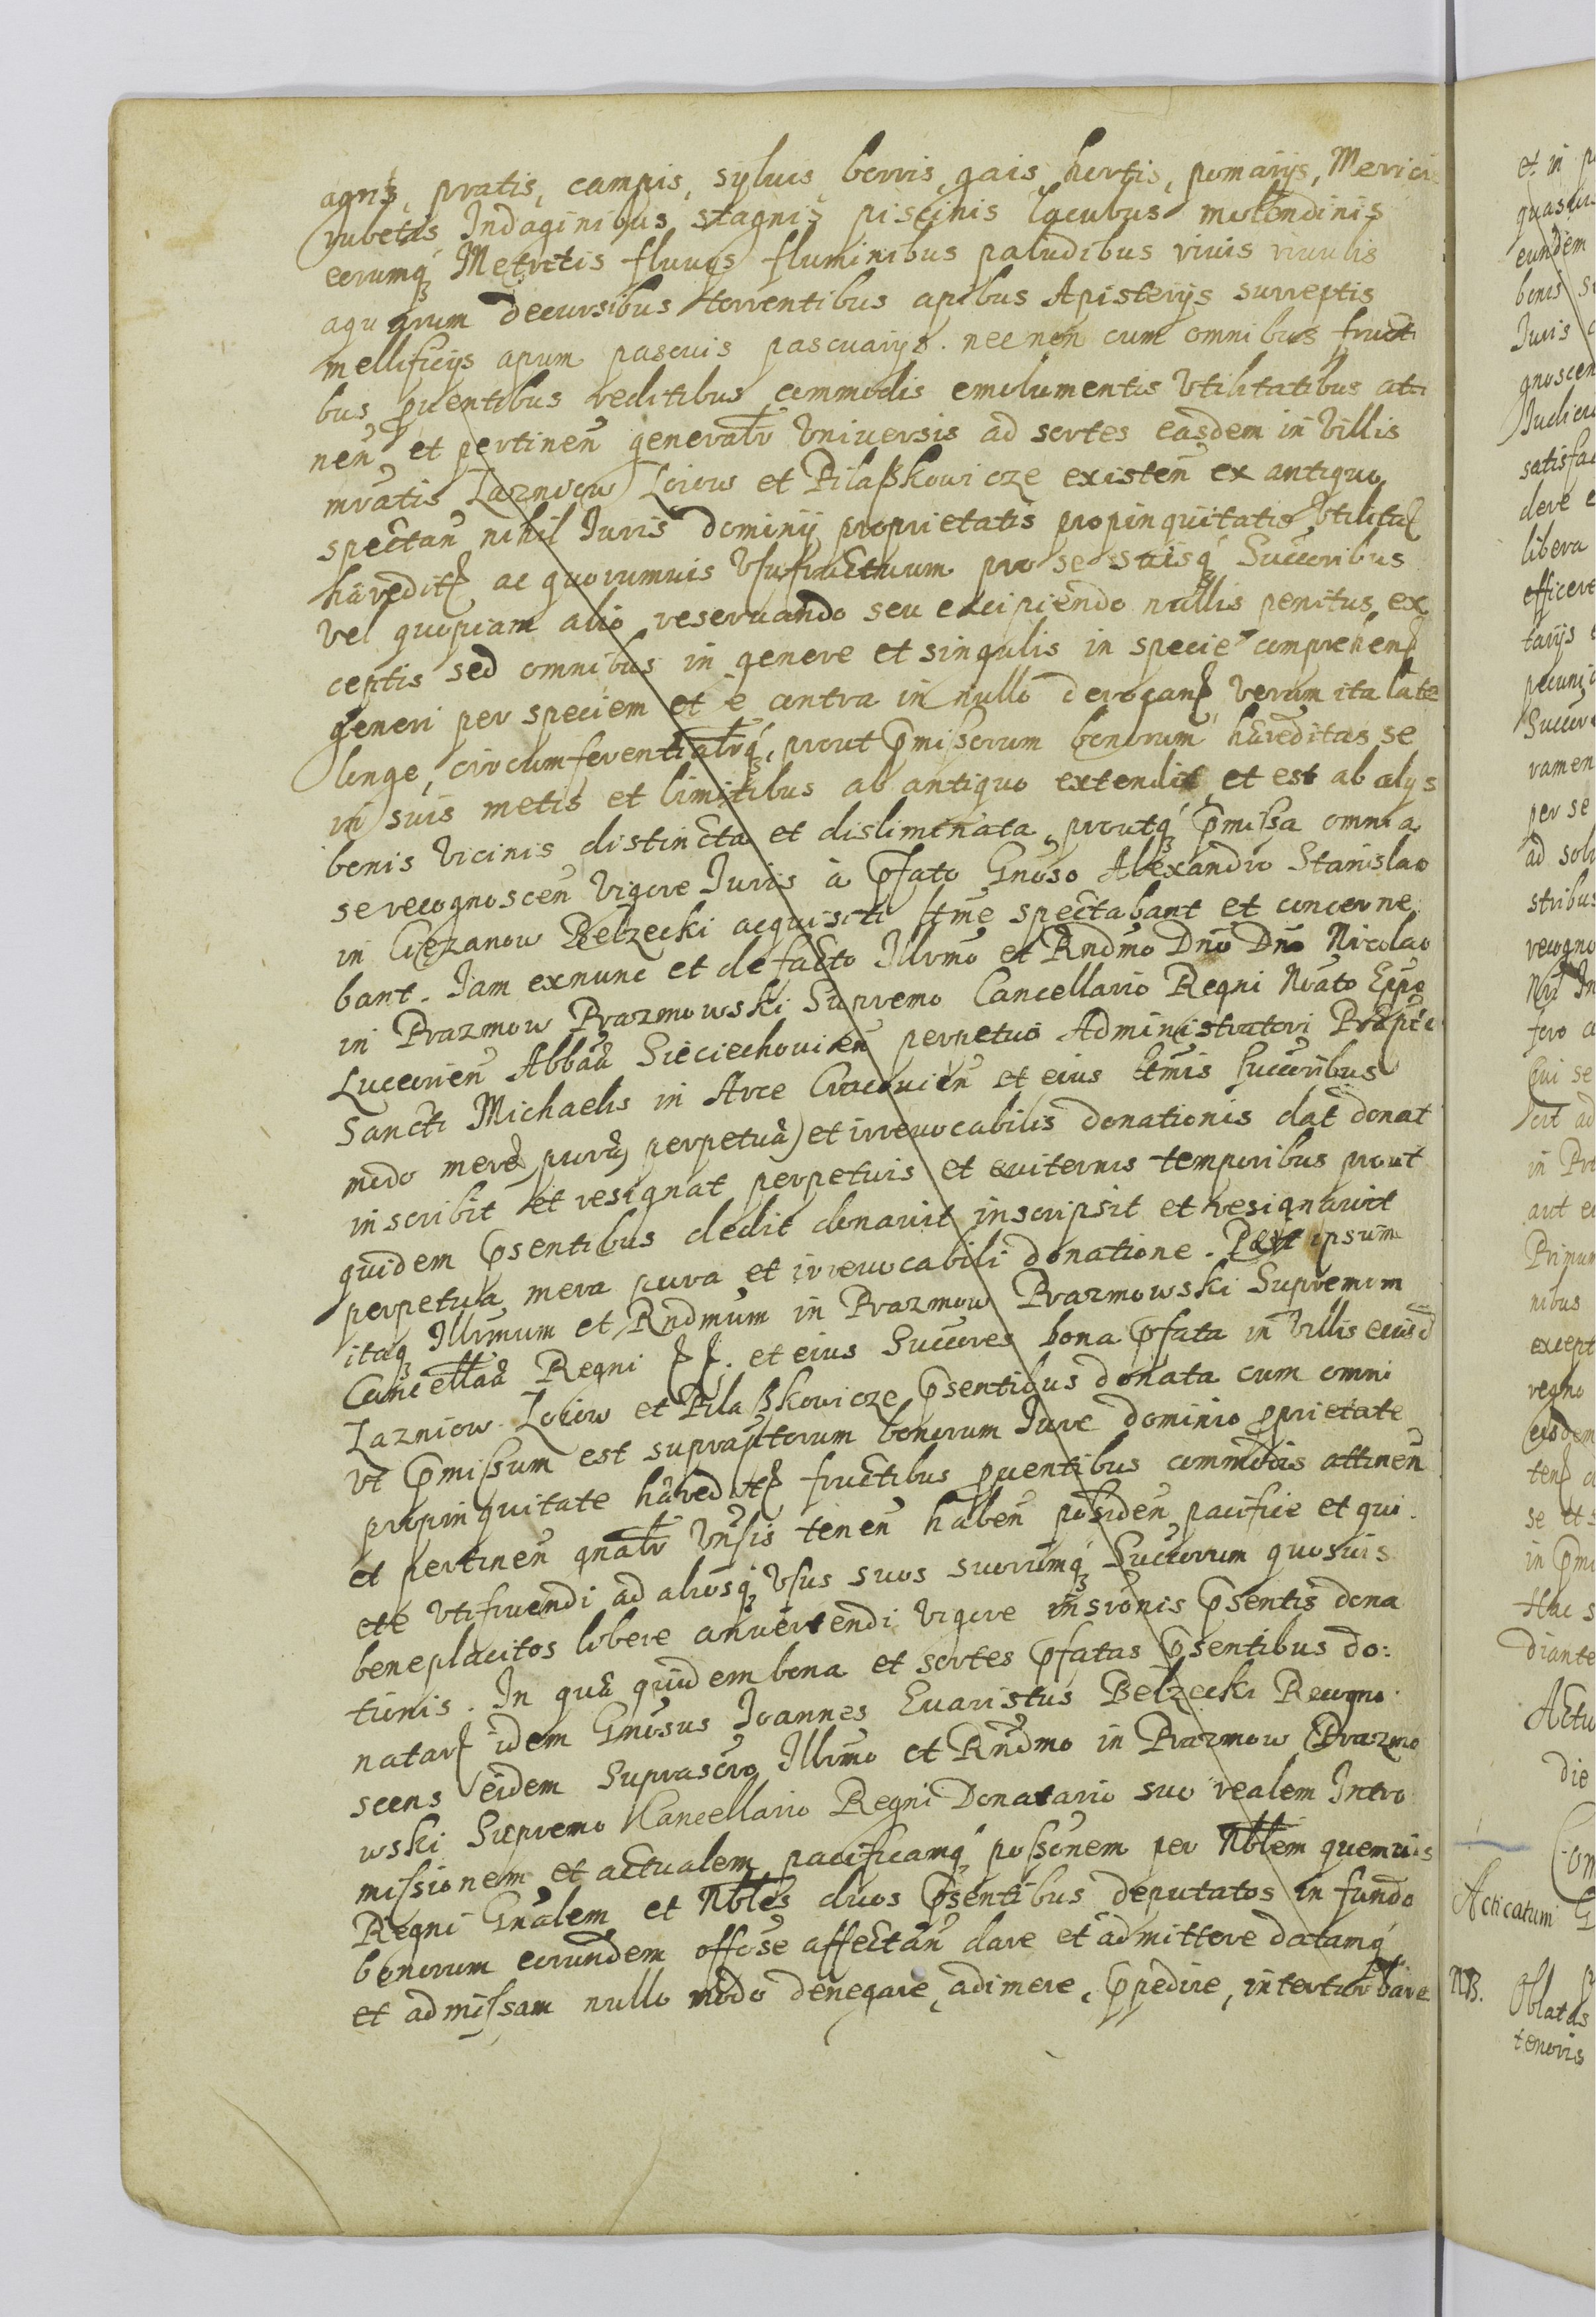 agris, pratis, campis, syluis borris, gais, hortis, pomarijs, Mericis
rubetis Indaginibus stagnis piscinis lacubus molendinis
eorumq̃ Metretis fluuijs fluminibus paludibus riuis riuulis
aquarum decursibus torrentibus apibus Apisterijs surreptis
mellificijs apum pascuis pascuarijs. nec non cum omnibus fructi
bus puentibus reditibus commodis emolumentis Vtilitatibus atti
nen̄ et pertinen̄ generalr̄ Vniuersis ad sortes easdem in Villis
mratis Lazniow Loiow et Pilaßkowicze existen̄ ex antiquo
spectan̄ nihil Iuris dominij proprietatis propinquitatis Vtilitat
hæredit ac quorumuis Vsufructuum pro se suisq̃ Succoribus
vel quopiam alio reseruando seu excipiendo nullis penitus ex
ceptis sed omnibus in genere et singulis in specie comprehens
generi per speciem et è contra in nullo derogan verum ita late
longe, circumferentialrq̃, prout p̄missorum bonorum hæreditas se
in suis metis et limitibus ab antiquo extendit et est ab alijs
bonis Vicinis distincta et disliminata, proutq̃ p̄missa omnia
se recognoscen̄ Vigore Iuris à p̄fato Gnoso Alexandro Stanislao
in Ciezanow Belzecki acquisiti ltme spectabant et concerne
bant. Iam exnunc et de facto Illrmo et Rndmo Dn̄o Dn̄o Nicolao
in Prazmow Prazmowski Supremo Cancellario Regni Nrato Eppo
Luceorien̄ Abbaā Sieciechouien̄ perpetuo Administratori Præpto
Sancti Michaelis in Arce Cracouien̄ et eius ltmis Succoribus
modo meræ puræ, perpetuæ et irreuocabilis donationis dat donat
inscribit et resignat perpetuis et æuiternis temporibus prout
quidem p̄sentibus dedit donauit inscripsit et resignauit
perpetua mera pura et irreuocabili donatione. ipsum
itaq̨ Illrmum et Rndmum in Prazmow Prazmowski Supremum
Cancellaā Regni et eius Succores bona p̄fata in Villis eiusd
Lazniow Loiow et Pilaßkowicze p̄sentibus donata cum omni
vt p̄missum est suprauptorum bonorum Iure dominio proprietate
propinquitate hæredit fructibus puentibus commodis attinen̄
et pertinen̄ gnalr̄ Vn̄sis tenen̄ haben̄ possiden̄ pacifice et qui
ete Vtifruendi ad aliosq̃ Vsus suos suorumq̃ Succorum quosuis
beneplacitos libere conuertendi Vigore insionis p̄sentis dona
tionis. In quæ quidem bona et sortes p̄fatas p̄sentibus do:
natas idem Gnosus Ioannes Euaristus Belzecki Recogno
scens eidem Suprascro Illrmo et Rn̄dmo in Prazmow Prazmo
wski Supremo Cancellario Regni Donatario suo realem Intro
missionem et actualem pacificamq̃ possonem per Nblem quemuis
Regni Gnalem et Nbles duos p̄sentibus deputatos in fundo
bonorum eorundem offose affectan̄ dare et admittere datamq̃
et admissam nullo modo denegare, adimere, p̄pedire, interturbare
et in
quasuis
eundem
bonis
Iuris
gnoscen
Iudicio
satisfac
dere
libera
efficere
tarijs
pecunia
Succor
ramen
per se
ad solu
stribus
recogno
Nri In
foro
Qui se
in
aut
Primum
nibus
except
regno
eisdem
se et
in p̄mi
Hac
diante
Actu
die
Com
Acticatum
NB. Oblatas
tenoris